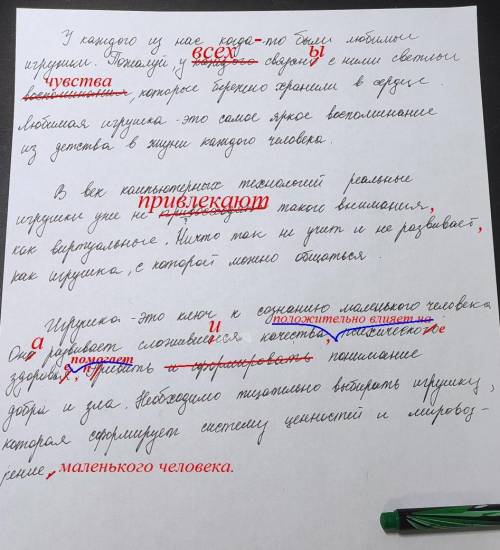 У каждого из нас когда-то были любимые
игрушки. Пожалуй у каждого всех связаны с ними светлые
чувства
воспоминания, которые бережно храним в сердце.
Любимая игрушка - это самое яркое воспоминание
из детства в жизни каждого человека.
В век компьютерных технологий реальные
привлекают
игрушки уже не такого внимания,
как виртуальные. Ничто так не учит и не развивает,
как игрушка, с которой можно общаться.
Игрушка - это ключ к сознанию маленького человека
положительно влияет на
а и
Он развивает сложившиеся качества, психическое
помогает
здоровье, привить и сформировать понимание
добра и зла. Необходимо тщательно выбирать игрушку,
которая сформирует систему ценностей и мировоз-
рение маленького человека.